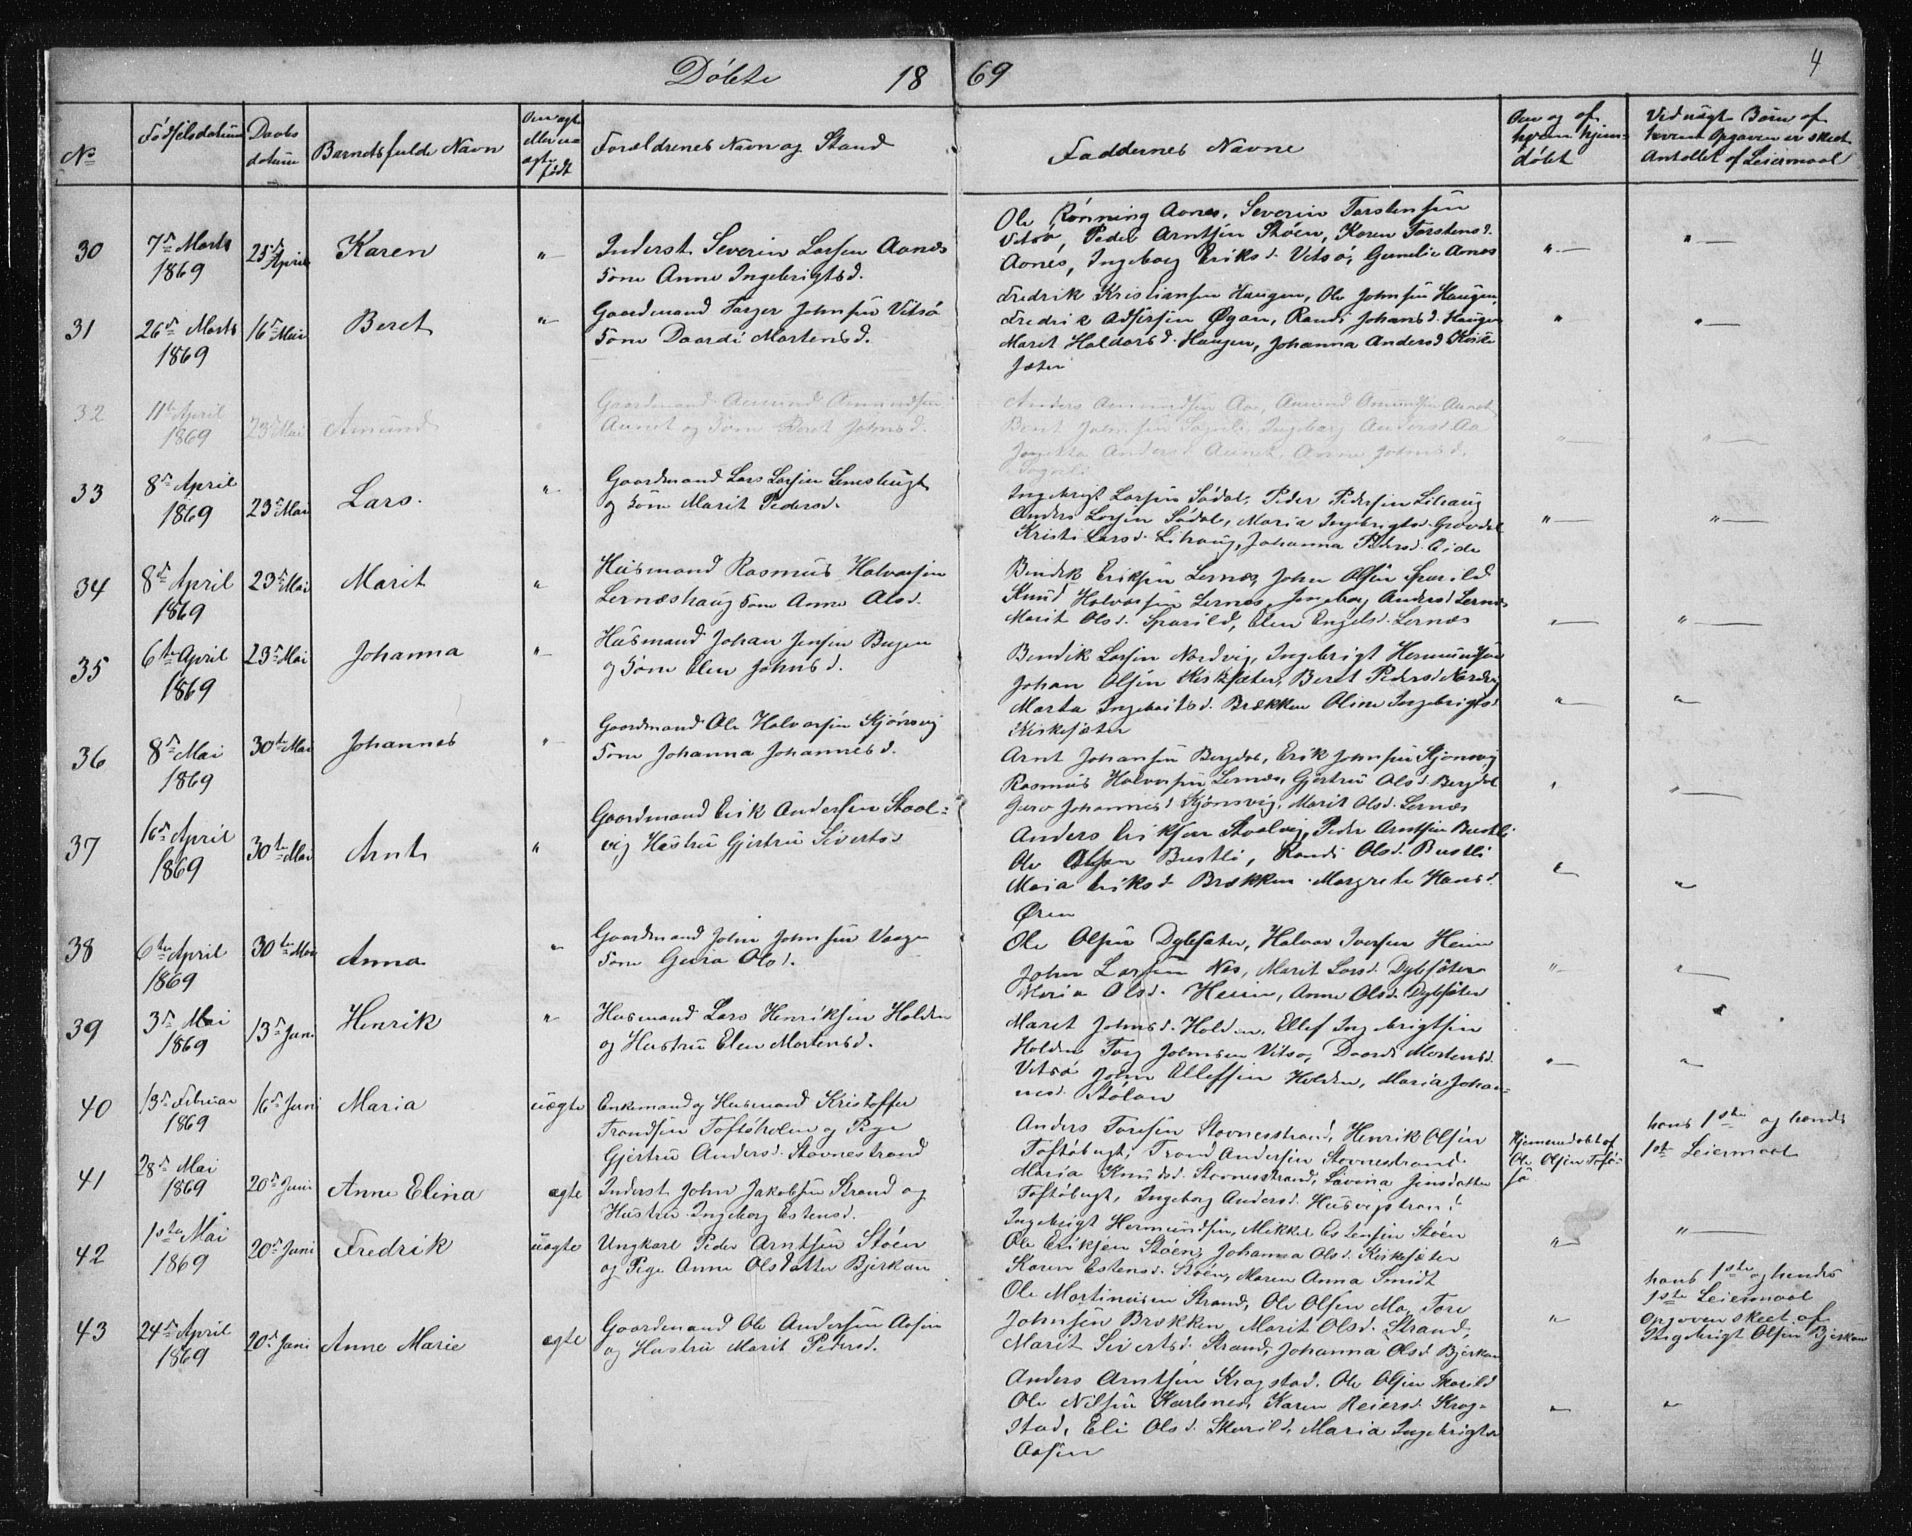 Døbte 18 69
4
No
Fødselsdatum
Daabs datum
Barnets fulde Navn
Om ægte eller uægte født
Forældrenes Navn og Stand
Faddernes Navne
Om og af hvem hjemmedøbt
Ved uægt. Børn af hvem Opgaven er skeet Antallet af Leiermaal
30 7de Marts 1869 25de April Karen "
Inderst Severin Larsen Aanes
Kone Anne Ingebrigtsd.
Ole Rønning Aanes, Severin Torstensen
Vitsø, Peder Arntsen Støen, Karen Torstensd.
Aanes, Ingeborg Eriksd. Vitsø, Gunelie Aanes
" "
31 26de Marts 1869 16de Mai Beret "
Gaardmand Torger Johnsen Vitsø
Kone Daardi Mortensd.
Fredrik Kristiansen Haugen, Ole Johnsen Haugen,
Fredrik Adsersen Øyan, Randi Johansd. Haugen
Marit Haldorsd. Haugen, Johanna Andersd. Kirke
sæter
" "
32 11te April 1869 23de Mai Amund
Gaardmand Amund Amundsen
Aunet og Kone Beret Johnsd.
Anders Amundsen Aae, Amund Amundsen Aunet
Beret Johnsen Sognli, Ingeborg Andersd. Aa
Andersd. Aunet, Anne Johnsd.
Sognli
" "
33 8de April 1869 23de Mai Lars. "
Gaardmand Lars Larsen
og Kone Marit Pedersd.
Ingebrigt Larsen Sødal, Peder Pedersen Lihaug
Anders Larsen Sødal, Maria Ingebrigtsd.
Kristi Larsd. Lihaug, Johanna Pedersd. Eide
" "
34 8de April 1869 23de Mai Marit "
Husmand Rasmus Halvorsen
Lernæshaug Kone Anne Olsd.
Bendik Eriksen Lernæs, John Olsen Sparild
Knud Halvorsen Lernæs, Ingeborg Andersd. Lernæs
Marit Olsd. Sparild, Elen Engelsd. Lernæs
" "
35 6te April 1869 23de Mai Johanna "
Husmand Johan Jensen Bugen
og Kone Elen Johnsd.
Bendik Larsen Nordvig, Ingebrigt Hermundsen
Johan Olsen Kirksæter, Beret Pedersd. Nordvig
Marta Ingebritsd. Brækken Oline Ingebrigtsd
Kirkesæter
" "
36 8de Mai 1869 30te Mai Johannes "
Gaardmand Ole Halvorsen Kjønsvig
Kone Johanna Johannesd.
Arnt Johansen Bergdal, Erik Johnsen Kjønsvig
Rasmus Halvorsen Lernæs, Gjertru Olsd. Bergdal
Guro Johannesd. Kjønsvig, Marit Olsd. Lernæs
" "
37 16de April 1869 30te Mai Arnt "
Gaardmand Erik Andersen Staal=
vig Hustru Gjertru Sivertsd
Anders Eriksen Staalvig, Peder Arntsen Bustli
Ole Olsen Bustli, Randi Olsd. Bustli
Maria Eriksd. Brækken. Margrete Hansd.
Øren
" "
38 6te April 1869 30te Mai Anna "
Gaardmand John Johnsen Vaagen
Kone Gura Olsd.
Ole Olsen Dybsæter, Halvor Iversen Heim
John Larsen Næs, Marit Larsd. Dybsæter
Maria Olsd. Heim, Anne Olsd. Dybsæter
" "
39 3de Mai 1869 13de Juni Henrik "
Husmand Lars Henriksen Holden
og Hustru Elen Mortensd.
Maret Johnsd. Holden, Ellef Ingebrigtsen
Holden Torg Johnsen Vitsø, Daardi Mortensd.
Vitsø John Ellefsen Holden, Maria Johan=
nesd. Stølan
" "
40 13de Februar 1869 16de Juni Maria uægte
Enkemand og Husmand Kristoffer
Trondsen Toftøholm og Pige
Gjertru Andersd. Stovnestrand
Anders Toresen Stavnesstrand, Henrik Olsen
Toftøbugt, Trond Andersen Stovnestrand
Maria Knudsd. Stovnesstrand, Lavina Jensdatter
Toftøbugt, Ingeborg Andersd. Husvigstrand
Hjemmedøbt af Ole Olsen
hans 1ste og hendes 1ste Leiermaal
41 28de Mai 1869 20de Juni Anne Elina ægte
Inderst John Jakobsen Strand og
Hustru Ingeborg Estensd.
Ingebrigt Hermundsen, Mikkel Estensen Støen
Ole Eriksen Støen, Johanna Olsd. Kirkesæter
Karen Estensd. Støen, Maren Anna Smidt
" "
42 1ste Mai 1869 20de Juni Fredrik uægte
Ungkarl Peder Arntsen Støen
og Pige Anne Olsdatter Bjerkan
Ole Martinusen Strand, Ole Olsen Mo, Tore
Johnsen Brækken, Marit Olsd. Strand,
Marit Sivertsd. Strand, Johanna Olsd. Bjerkan
"
hans 1ste og hendes
1ste Leiermaal
Opgaven skeet af
Ingebrigt Olsen Bjerkan
43 24de April 1869 20de Juni Anne Marie ægte
Gaardmand Ole Andersen Aasen
og Hustru Marit Pedersd.
Anders Arntsen Krogstad. Ole Olsen Skarild
Ole Nilsen Karlsnes, Karen Reiersd. Krog=
stad, Eli Olsd. Skarild, Maria Ingebrigtsd
Aasen
" "